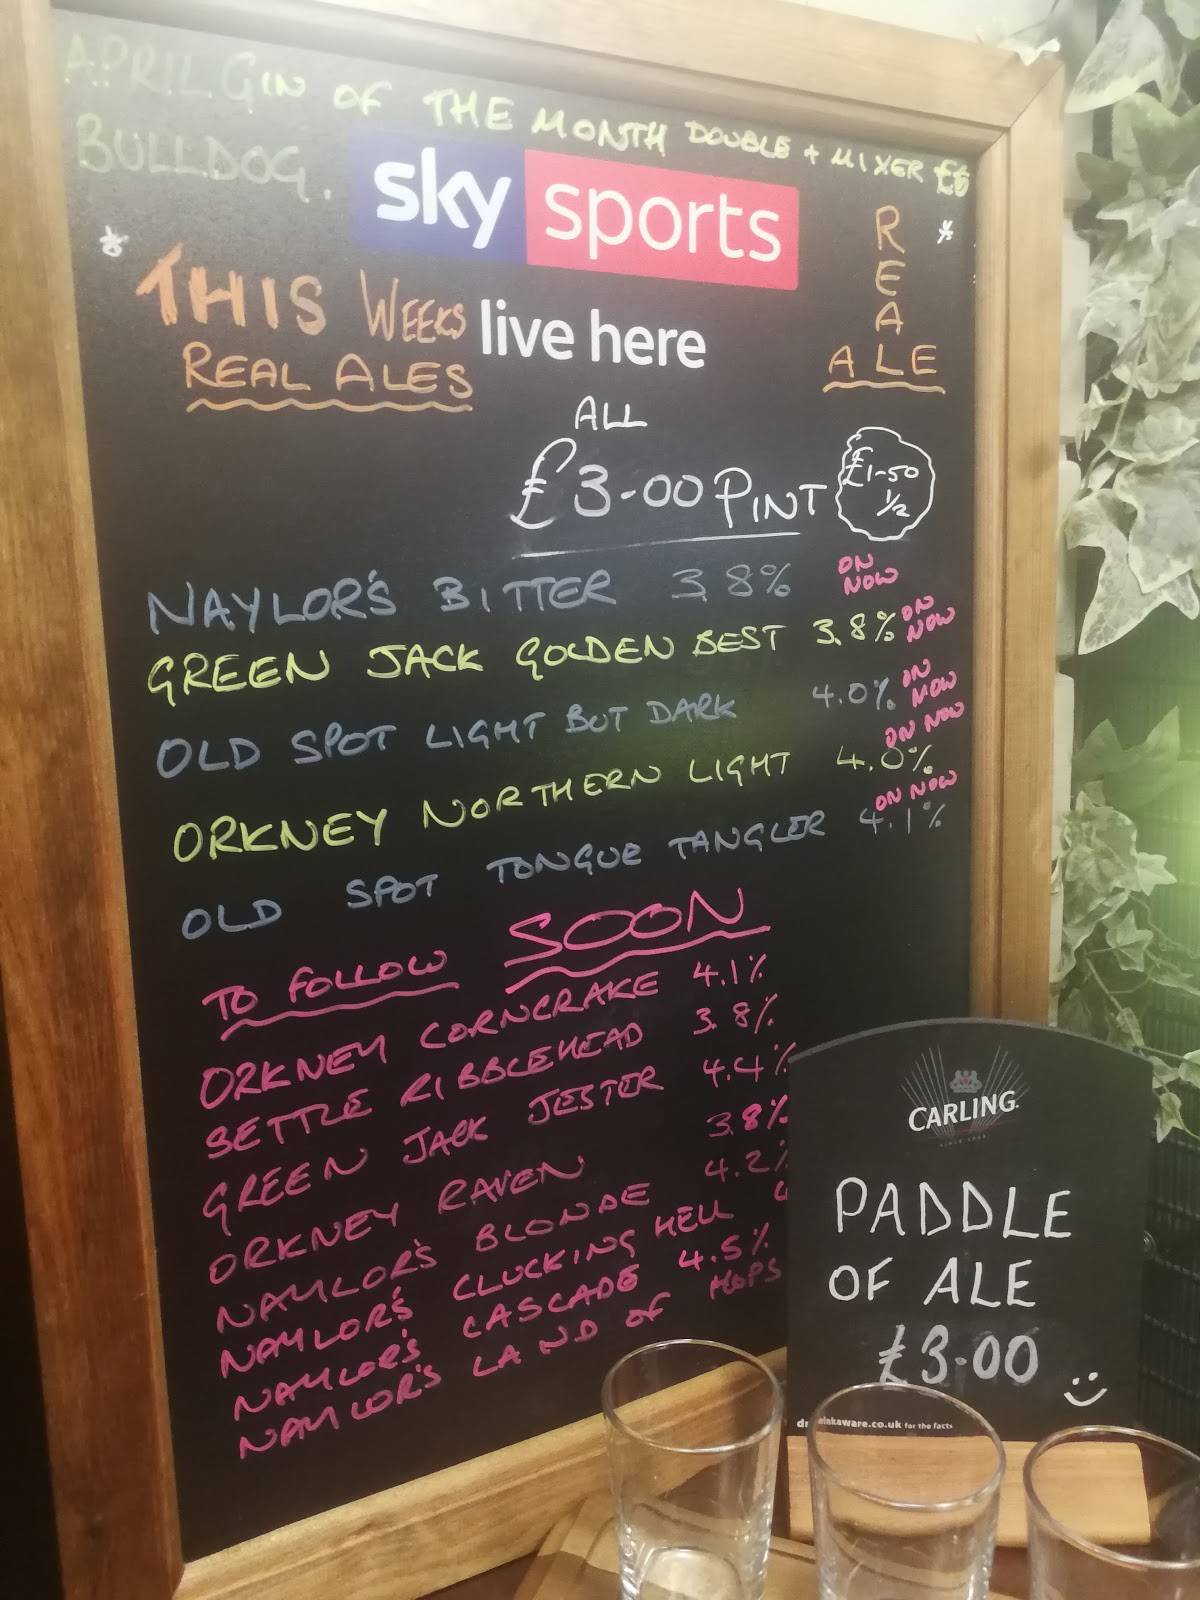 APRIL GIN OF THE MONTH DOUBLE + MIXER £6
BULLDOG.
sky sports
live here
THIS WEEKS
REAL ALES
REAL
ALE
ALL
£3-00 PINT
£1-50
1/2
NAYLOR'S BITTER 3.8% ON NOW
GREEN JACK GOLDEN BEST 3.8% ON NOW
OLD SPOT LIGHT BUT DARK 4.0% ON NOW
ORKNEY NORTHERN LIGHT 4.0% ON NOW
OLD SPOT TONGUE TANGLER 4.1% ON NOW
TO FOLLOW SOON
ORKNEY CORNCRAKE 4.1%
SETTLE RIBBLEHEAD 3.8%
GREEN JACK JESTER 4.4%
ORKNEY RAVEN 3.8%
NAYLOR'S BLONDE 4.2%
NAYLOR'S CLUCKING HELL
NAYLOR'S CASCADE 4.5%
NAYLOR'S LAND OF HOPS
CARLING
PADDLE
OF ALE
£3-00
drinkaware.co.uk for the facts